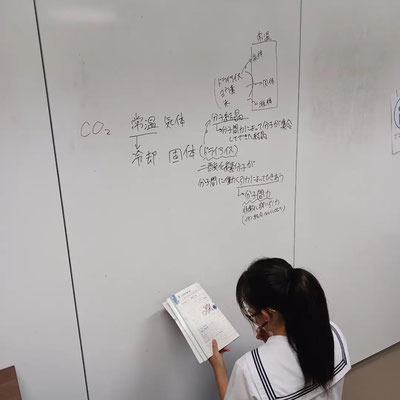 常温
気体
固体
液体
ドライアイス
ヨウ素
氷
CO₂ 常温 気体
分子結晶
分子間力によって分子が集合
してできた結晶
冷却 固体 (ドライアイス)
二酸化炭素分子が
分子間に働く引力によってむきあう
分子間力